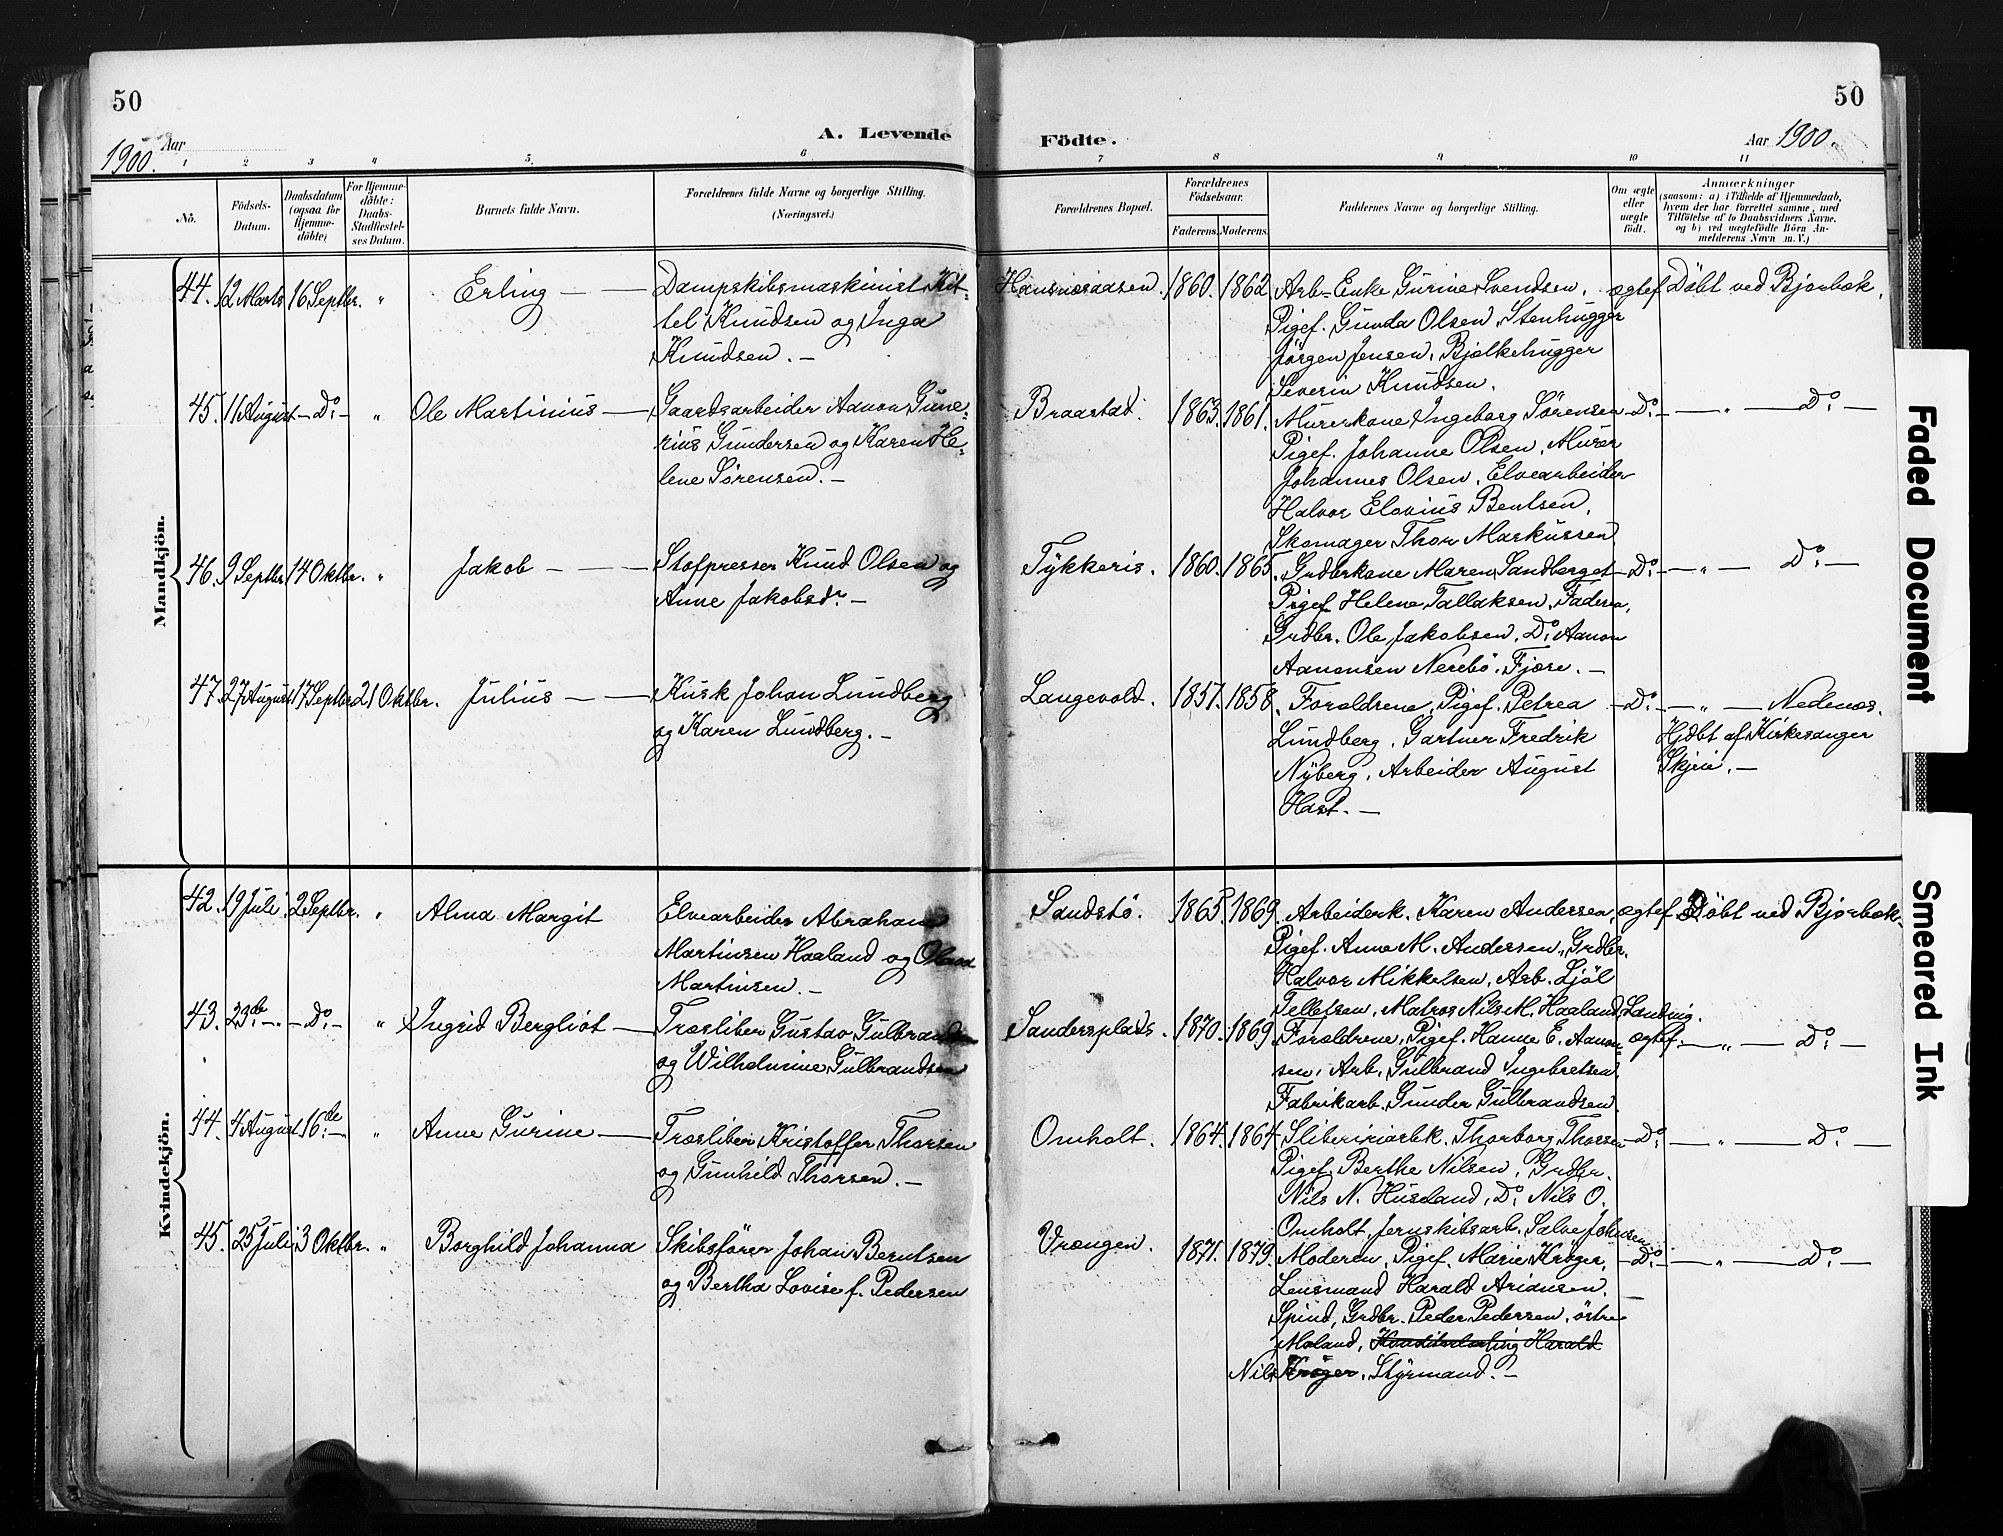 50
50
Aar 1900.
A. Levende
Födte.
Aar 1900.
1
2
3
4
5.
6
7
8
9
10
11
No.
Födsels-
Datum.
Daabsdatum
(ogsaa for
Hjemme-
döbte)
For Hjemme-
döbte:
Daabs-
Stadfæstel-
ses Datum.
Barnets fulde Navn.
Forældrenes fulde Navne og borgerlige Stilling.
(Næringsvei.)
Forældrenes Bopæl.
Forældrenes
Födselsaar.
Faderens.
Moderens.
Faddernes Navne og borgerlige Stilling.
Om ægte
eller
uægte
födt.
Anmærkninger
(saasom: a) i Tilfælde af Hjemmedaab,
hvem der har forrettet samme, med
Tilföielse af to Daabsvidners Navne,
og b) ved uægtefödte Börn An-
melderens Navn m. V.)
Mandkjön.
44. 12 Marts 16 Septbr. " Erling —
Dampskibsmaskinist Kit-
tel Knudsen og Inga
Knudsen. —
1860. 1862.
Arb-Enke Gurine Svendsen,
Pigef. Gunda Olsen, Stenhugger
Jørgen Jensen, Bjelkehugger
Severin Knudsen.
ægtef
Döbt ved Bjørbæk.
45. 11 August — Do. — " Ole Martinius —
Gaardsarbeider Aanon Gune-
rius Gundersen og Karen He-
lene Sørensen. —
Braastad.
1863. 1861.
Murerkone Ingeborg Sørensen
Pigef. Johanne Olsen, Murer
Johannes Olsen, Elvearbeider
Halvor Elovius Bentsen,
Skomager Thor Markussen
— Do: — — " — Do: —
46. 9 Septbr 14 Oktbr. " Jakob —
Stofpresser Knud Olsen og
Anne Jakobsdr. —
Tykkeris.
1860. 1865.
Grdbrkone Maren Sandberget
Pigef. Helene Tallaksen, Faderen,
Grdbr. Ole Jakobsen, Do: Aanon
Aanonsen Nerebö, Fjære. —
— Do: — — " — Do: —
47. 27 August 17 Septbr 21 Oktbr. Julius —
Kusk Johan Lundberg
og Karen Lundberg. —
Langevold.
1857. 1858.
Forældrene, Pigef. Petrea
Lundberg, Gartner Fredrik
Nyberg, Arbeider August
Hast. —
— Do: — — " — Nedenæs.
Hjdöbt af Kirkesanger
Skjeie. —
Kvindekjön.
42. 19 Juli 2 Septbr. " Alma Margit
Elvearbeider Abraham
Martinsen Haaland og
Martinsen. —
Sandstö.
1865. 1869.
Arbeiderk. Karen Andersen,
Pigef. Anne M. Andersen, Grdbr.
Halvor Mikkelsen, Arb. Ljöl
Telletsen, Matros Nils M. Haaland, Landvig.
ægtef
Döbt ved Bjørbæk.
43. 23de — " — Do: — " Ingrid Bergliot —
Træsliber Gustav Gulbrandsen
og Wilhelmine Gulbrandsen
Sandersplads.
1870. 1869
Forældrene, Pigef. Hanne E. Aanon-
sen, Arb. Gulbrand Ingebretsen,
Fabrikarb. Gunder Gulbrandsen.
ægtef. — " — Do: —
44. 4 August 16de — " Anne Gurine —
Træsliber Kristoffer Thorsen
og Gunhild Thorsen. —
Omholt.
1864. 1864.
Sliberiarbk. Thorborg Thorsen
Pigef. Berthe Nilsen, Grdbr.
Nils N. Husland, Do: Nils O.
Omholt, Jernskibsarb. Salve Johnsen
— Do: — " — Do: —
45. 25 Juli 3 Oktbr. " Borghild Johanna
Skibsfører Johan Berntsen
og Bertha Lovise f. Pedersen
Vrængen.
1871. 1879.
Moderen, Pigef. Marie Krøger,
Lensmand Harald Ariansen,
Spind, Grdbr. Peder Pedersen, östre
Maland, Harald
Nils Krøger, Styrmand. —
— Do: — — " — Do: —
Faded Document
Smeared Ink